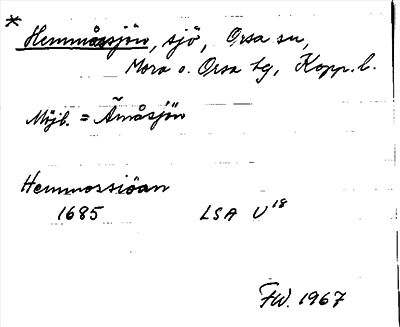 * Hemmåssjön, sjö, Orsa sn,
Mora o. Orsa tg, Kopp. l.
Möjl. = Ämåsjön
Hemmossiöan
1685 LSA U18
FW. 1967